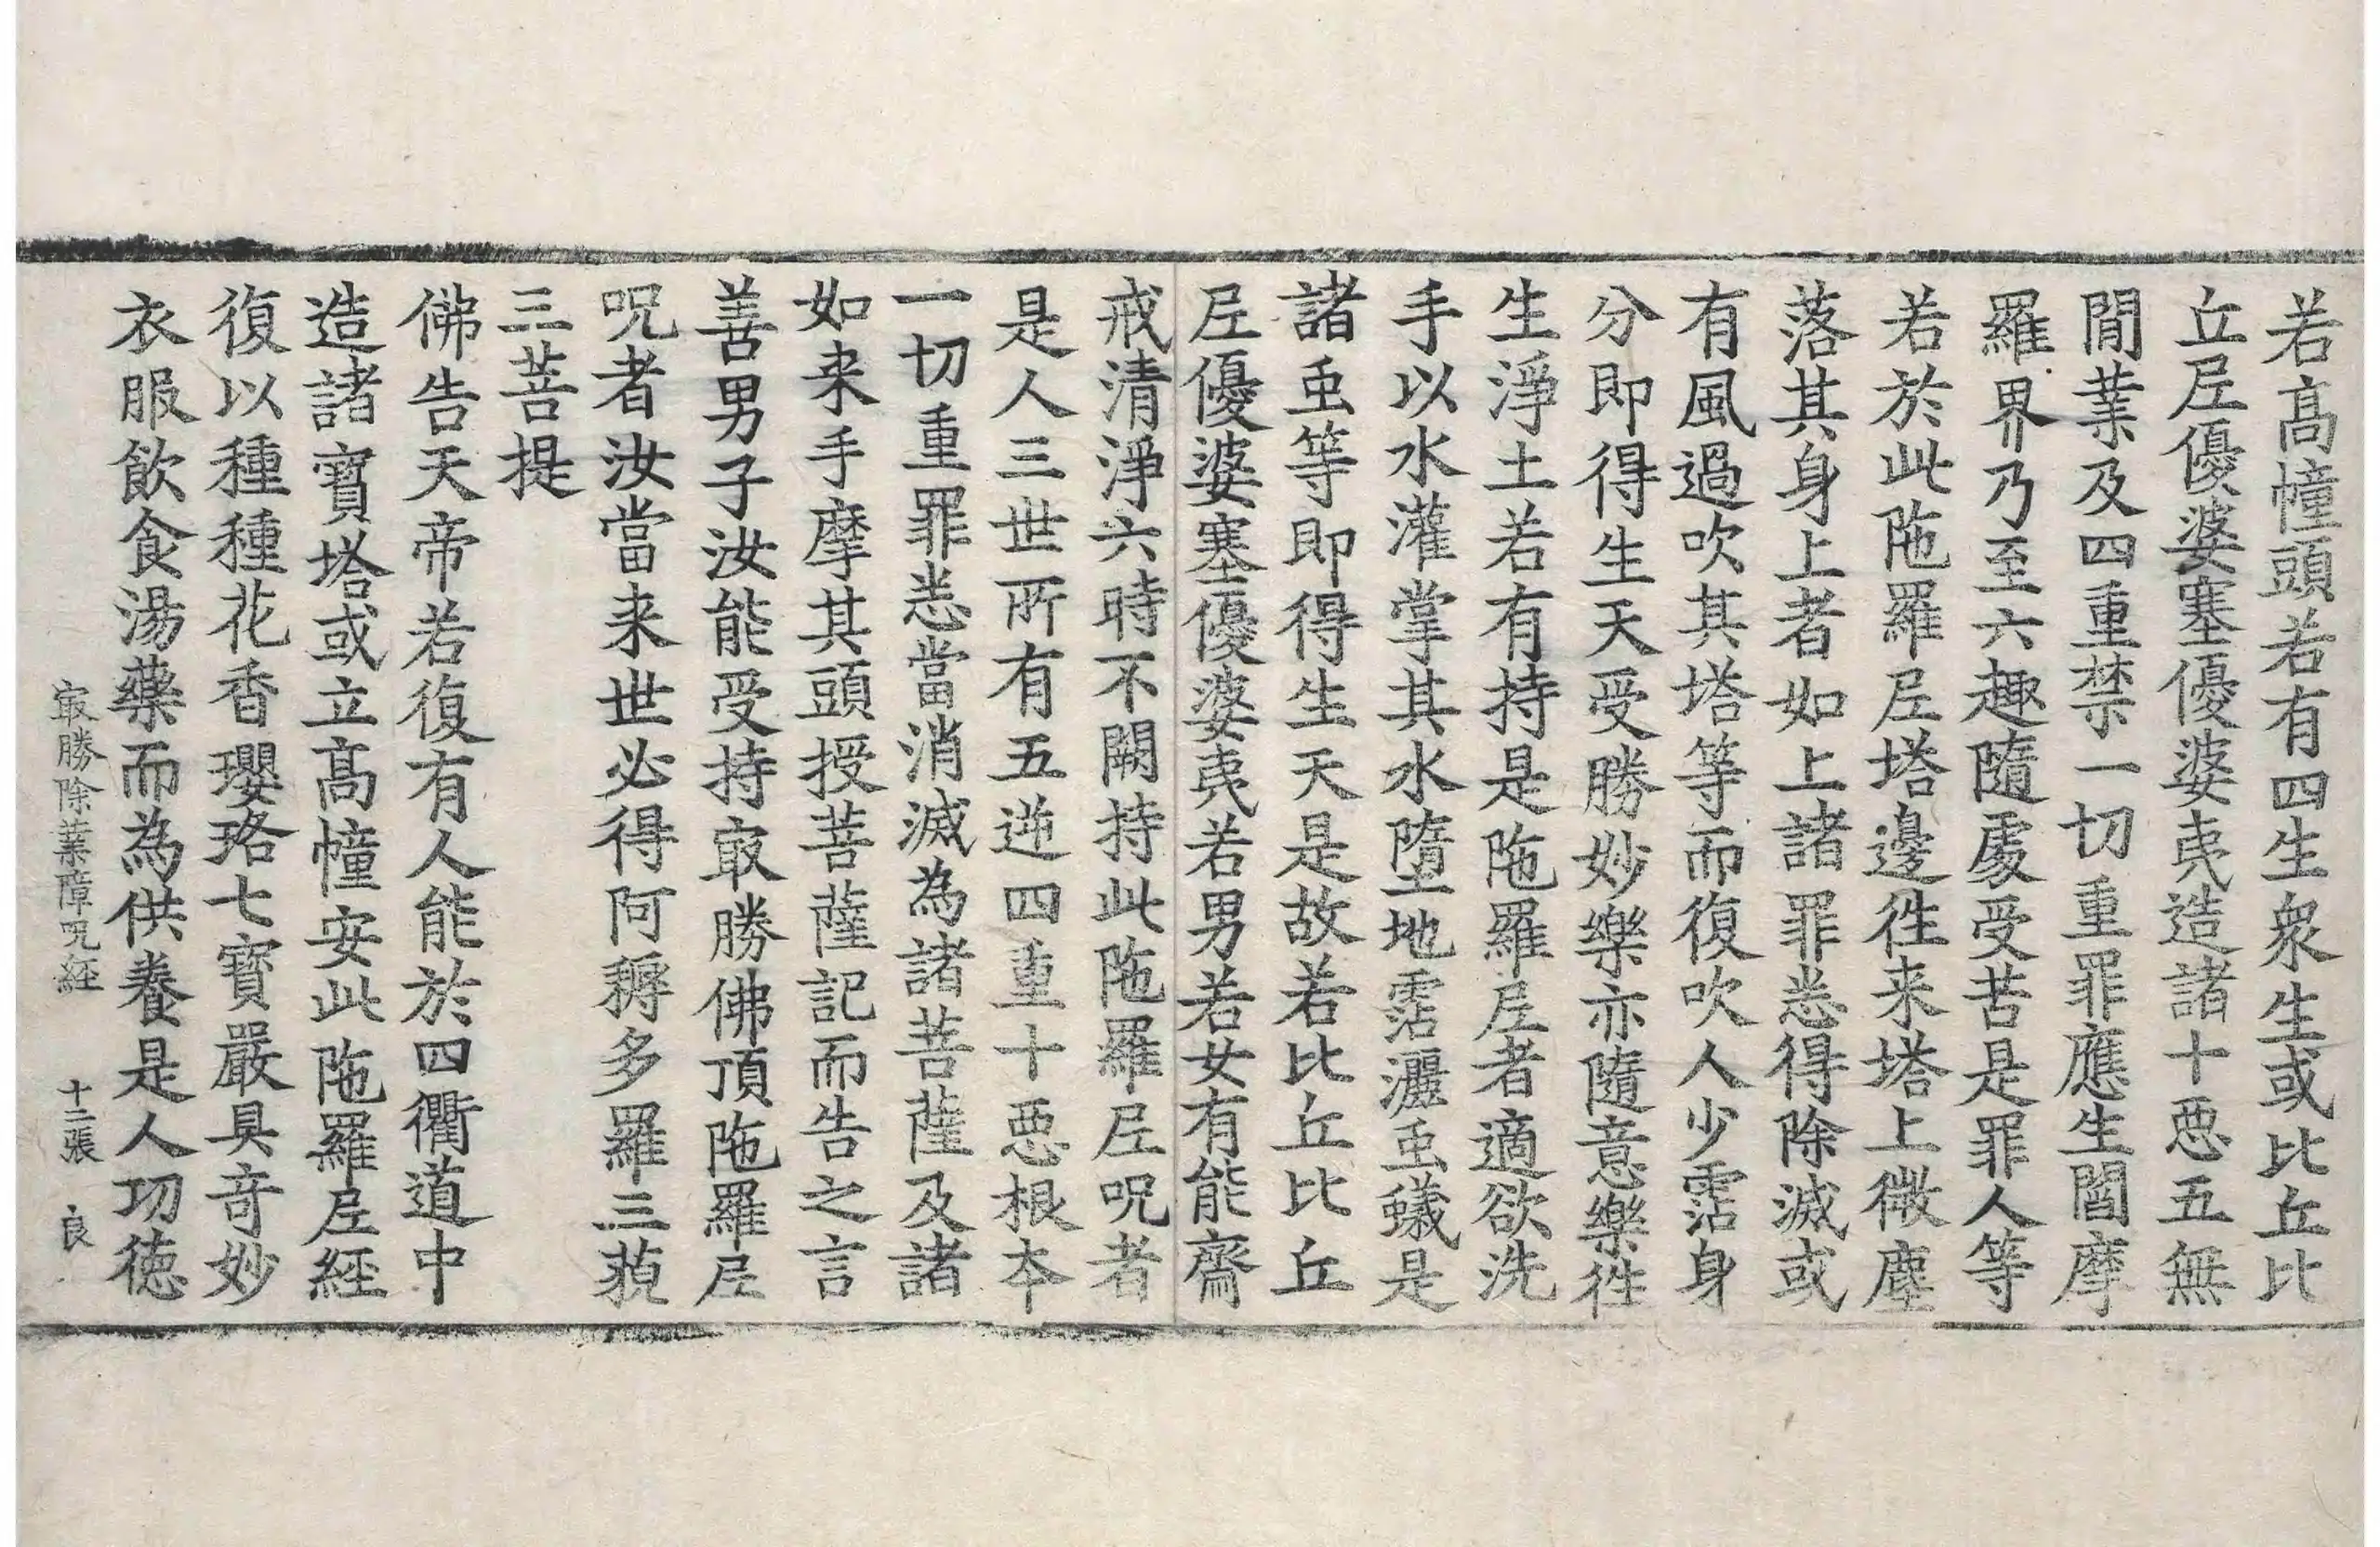 若髙幢頭若有四生衆生或比丘比
丘𡰱優婆塞優婆夷造諸十𢙣五無
閒業及四重禁一切重罪應生閻摩
羅界乃至六趣隨䖏受苦是罪人等
若於此陁羅𡰱塔邊徃来塔上微塵
落其身上者如上諸罪悉得除滅或
有風過吹其塔等而復吹人少霑身
分即得生天受勝妙樂亦隨意樂徃
生淨土若有持是陁羅𡰱者適欲洗
手以水灌掌其水墮地霑灑䖝蟻是
諸䖝等即得生天是故若比丘比丘
𡰱優婆塞優婆夷若男若女有能齋
戒清淨六時不闕持此陁羅𡰱呪者
是人三世所有五逆四重十𢙣根本
一切重罪悉當消滅為諸菩薩及諸
如来手摩其頭授菩薩記而告之言
善男子汝能受持㝡勝佛頂陁羅𡰱
呪者汝當来世必得阿耨多羅三藐
三菩提
佛告天帝若復有人能於四衢道中
造諸寶塔或立髙幢安此陁羅𡰱經
復以種種花香瓔珞七寶嚴具竒妙
衣服飲食湯藥而為供養是人功徳
㝡勝除業障呪経　十二張　良